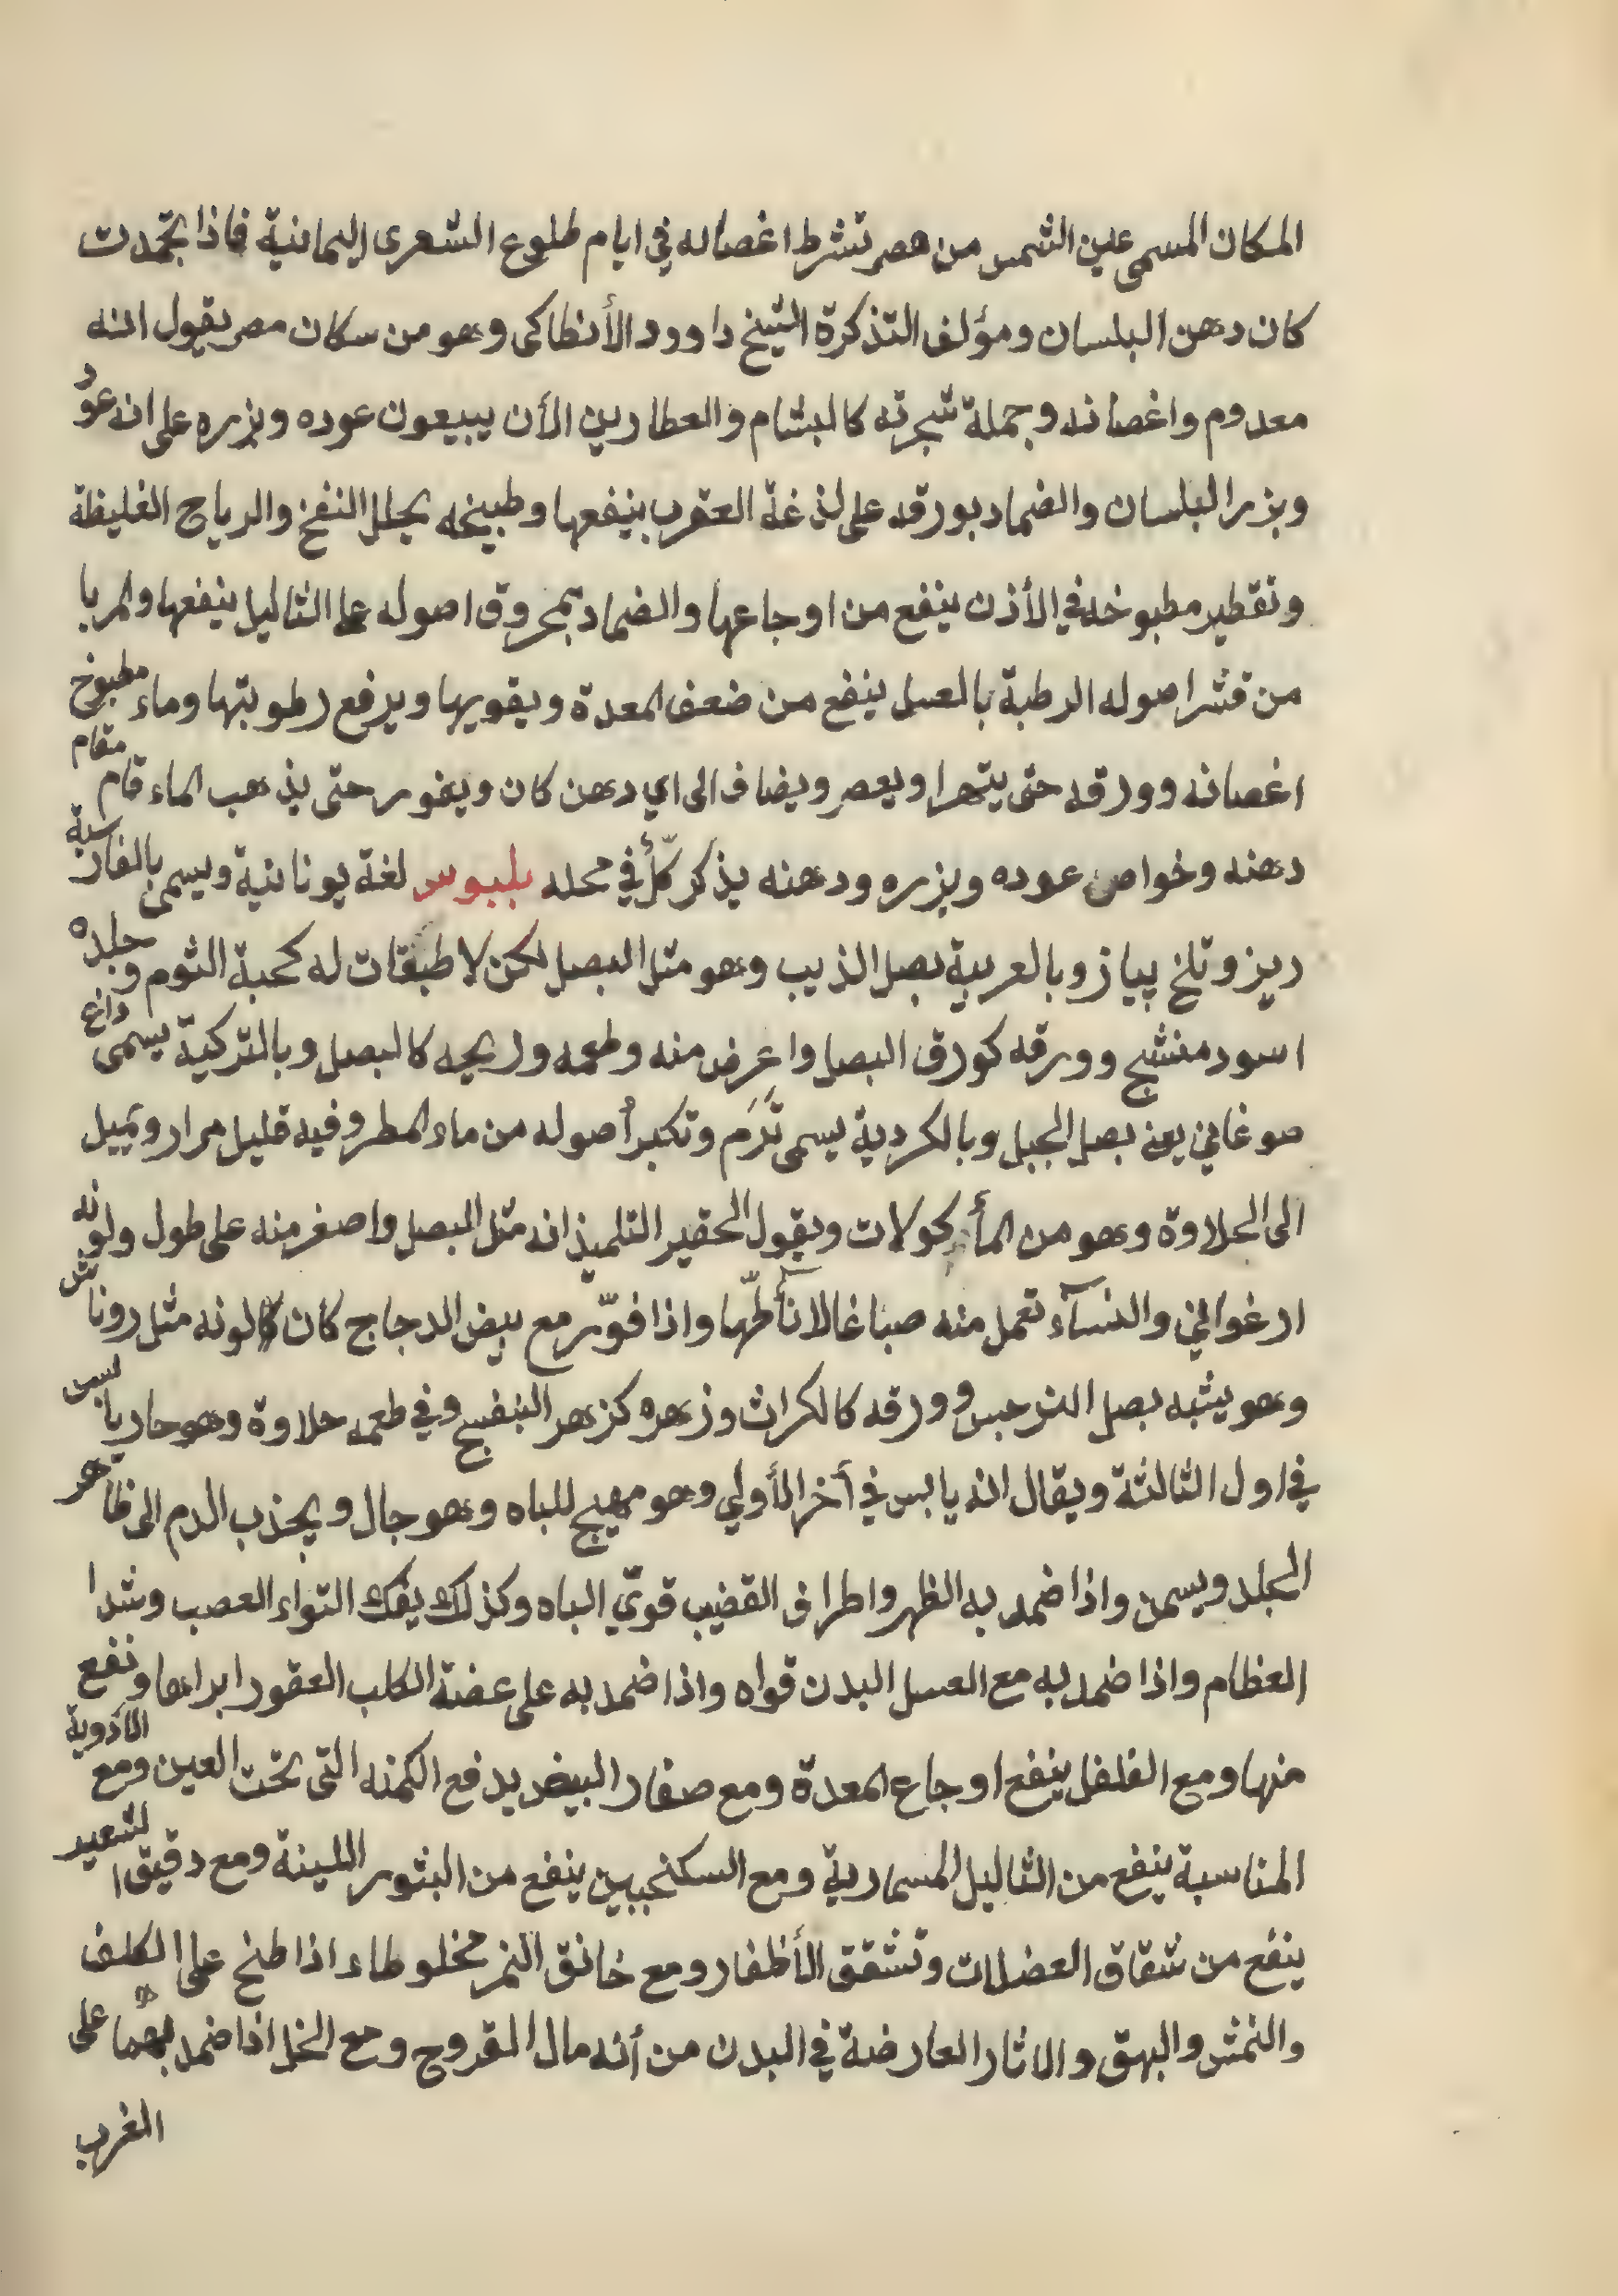 المكان المسمى عين الشمس من مصر تشرط اغصانه في ايام طلوع الشعرى اليمانية فاذا تجمدت
كان دهن البلسان ومؤلف التذكرة الشيخ داوود الأنطاكى وهو من سكان مصر يقول انه
معدوم واغصانه وجملة شجرته كالبشام والعطارين الأن يبيعون عوده وبزره على انه عود
وبزر البلسان والضماد بورقه على لذغة العقرب ينفعها وطبيخه يحلل النفخ والرياح الغليظة
وتقطير مطبوخه في الأذن ينفع من اوجاعها والضماد بمحروق اصوله على الثاليل ينفعها والمربا
من قشر اصوله الرطبة بالعسل ينفع من ضعف المعدة ويقويها ويرفع رطوبتها وماء مطبوخ
اغصانه وورقه حتى يتهرا ويعصر ويضاف الى اي دهن كان ويفور حتى يذهب الماء قام مقام
دهنه وخواص عوده وبزره ودهنه يذكر كلّأ في محله بلبوس لغة يونانية ويسمى بالفارسية
ريزو تلخ پياز وبالعربية بصل الذيب وهو مثل البصل لكن لا طبقات له كحبة الثوم وجلده
اسود منشج وورقه كورق البصل واعرض منه وطعمه وريحه كالبصل وبالتركية يسمى داغ
صوغاني يعني بصل الجبل وبالكردية يسمى تَرَم وتكبر أصوله من ماء المطر وفيه قليل مرار وتميل
الى الحلاوة وهو من المأكولات ويقول الحقير التلميذ انه مثل البصل واصغر منه على طول ولونه
ارغواني والنسآء تعمل منه صباغا لانأملّها واذا فوّر مع بيض الدجاج كان لونه مثل روناش
وهو يشبه بصل النرجس وورقه كالكراث وزهره كزهر البنفسج وفي طعمه حلاوة وهو حار يابس
في اول الثالثة ويقال انه يابس في أخر الأولي وهو مهيج للباه وهو جال ويجذب الدم الى ظاهر
الجلد ويسمن واذا ضمد به الظهر واطراف القضيب قويّ الباه وكذلك يفك التواء العصب وشدا
العظام واذا ضمد به مع العسل البدن قواه واذا ضمد به على عضة الكلب العقور ابراها ونفع
منها ومع الفلفل ينفع اوجاع المعدة ومع صفار البيض يدفع الكمنه التى تحت العين ومع الادوية
المناسبة ينفع من الثاليل المسمارية ومع السكنجبين ينفع من البثور اللينة ومع دقيق الشعير
ينفع من شقاق العضلات وتشقق الأظفار ومع خانق النمر مخلوطاء اذا طلخ على الكلف
والنمش والبهق والاثار العارضة في البدن من أندمال القروح ومع الخل اذا ضمد بهما على
الغرب